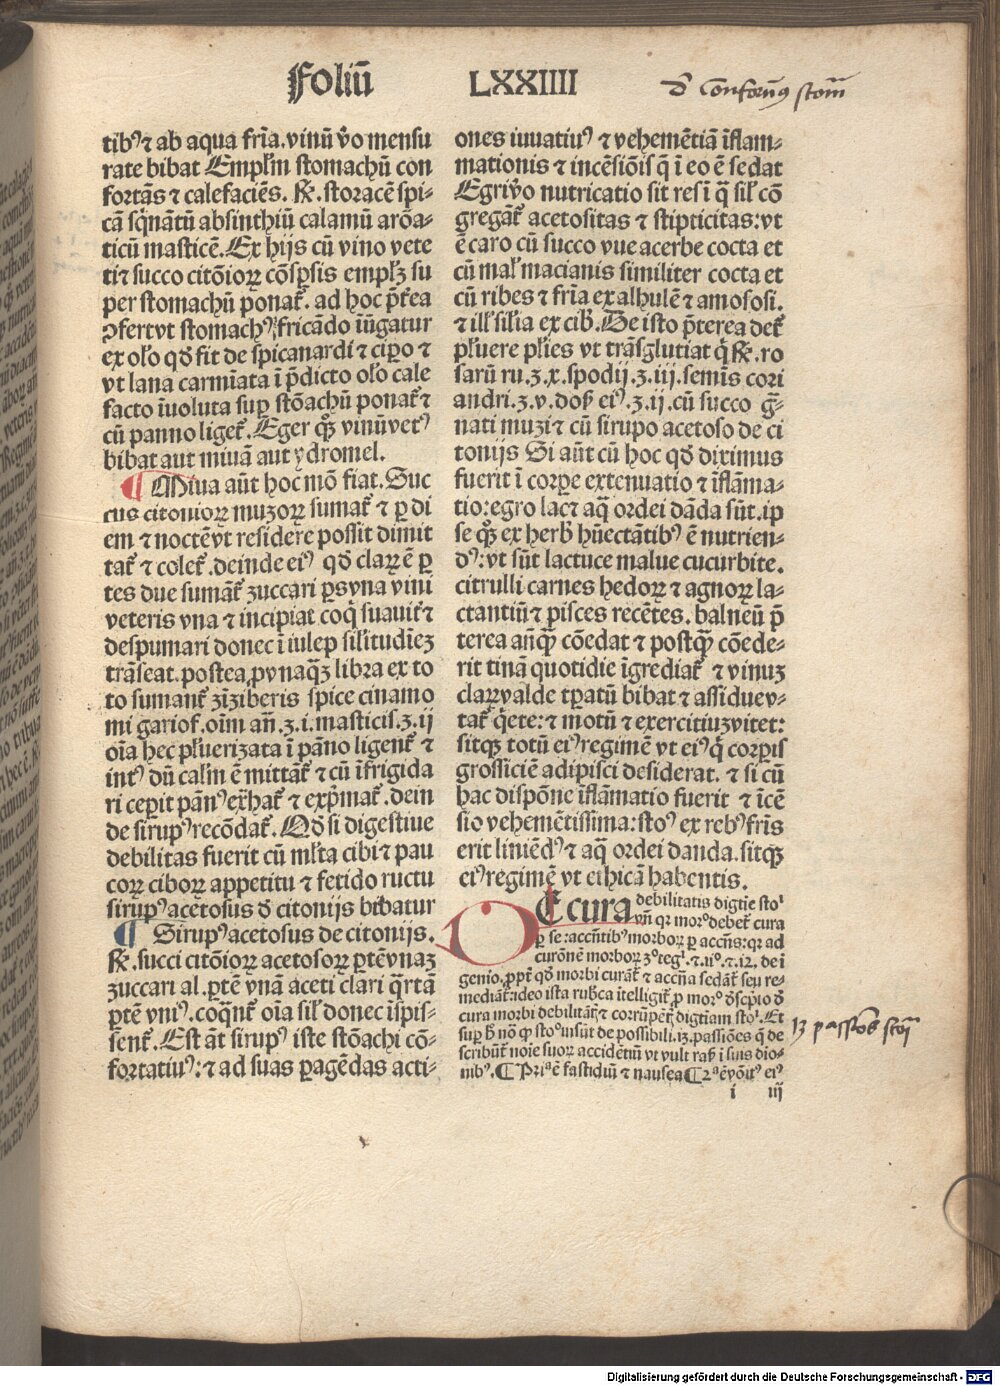 Foliū LXXIIII
tibꝰ ⁊ ab aqua fr̄ia. vinū v̊o mensu
rate bibat Emplr̄m stomachū con
fortās ⁊ calefaciēs. ℞. storacē spi-
cā sq̄nātū absinthiū calamū aroa-
ticū masticē. Ex hijs cū vino vete
ri ⁊ succo citōiorꝝ cōspsis emplꝫ su
per stomachū ponat᷑. ad hoc p̄t᷑ea
ꝯfert vt stomachꝰ fricādo iūgatur
ex ol̄o qd̄ fit de spicanardi ⁊ cipo ⁊
vt lana carmīata ī p̄dicto ol̄o cale
facto īuoluta sup stōachū ponat᷑ ⁊
cū panno liget᷑. Eger qꝫ vinū vetꝰ
bibat aut miuā aut ydromel.
¶ Miua aūt hoc mō fiat. Suc
cus citoniorꝝ muzorꝝ sumat᷑ ⁊ ꝑ di
em ⁊ noctē vt residere possit dimit
tat᷑ ⁊ colet᷑. deinde eiꝰ qd̄ clarꝝ ē ꝑ
tes due sumāt᷑ zuccari ꝑs vna vini
veteris vna ⁊ incipiat coq̄ suauit᷑ ⁊
despumari donec ī iulep sil̄itudīeꝫ
trāseat. postea, ꝓ vnaq̄ꝫ libra ex to
to sumant᷑ zīziberis spice cinamo
mi gariof. oīm an̄. ʒ. i. masticis. ʒ. ij
oīa hec pl̄uerizata ī pāno ligent᷑ ⁊
intꝰ dū calm̄ ē mittāt᷑ ⁊ cū īfrigida
ri ceperit pānꝰ ex̄hat᷑ ⁊ exp̄mat᷑. dein
de sirupꝰ recōdat᷑. Qd̄ si digestiue
debilitas fuerit cū ml̄ta cibi ⁊ pau
corꝝ ciborꝝ appetitu ⁊ fetido ructu
sirupꝰ acetosus d̄ citonijs bibatur
¶ Sirupꝰ acetosus de citonijs.
℞. succi citōiorꝝ acetosorꝝ ꝑtē vnaꝫ
zuccari al. ꝑtē vnā aceti clari q̄rtā
ꝑtē vni⁹. coq̄nt᷑ oīa sil̄ donec īspis-
sent᷑. Est āt sirupꝰ iste stōachi cō-
fortatiuꝰ: ⁊ ad suas ꝑagēdas acti-
ones iuuatiuꝰ ⁊ vehemētiā īflam-
mationis ⁊ incēsiōis q̄ ī eo ē sedat
Egri v̊o nutricatio sit res ī q̄ sil̄ cō
gregat᷑ acetositas ⁊ stipticitas: vt
ē caro cū succo vue acerbe cocta et
cū mal̄ macianis similiter cocta et
cū ribes ⁊ fr̄ia ex alhulē ⁊ amososi.
⁊ ill̄ sil̄ia ex cib̄. De isto p̄terea det᷑
pl̄uere pl̄ies vt trāsglutiat q̄ ℞. ro
sarū ru. ʒ. x. spodij. ʒ. iii. semīs cori
andri. ʒ. v. dos̄ eiꝰ. ʒ. ij. cū succo ḡ-
nati muzi ⁊ cū sirupo acetoso de ci
tonijs Si aūt cū hoc qd̄ diximus
fuerit ī corpe extenuatio ⁊ īflāma-
tio: egro lac ⁊ aq̄ ordei dāda sūt. ip
se qꝫ ex herb̄ hūectātibꝰ ē nutrien-
dꝰ: vt sūt lactuce malue cucurbite.
citrulli carnes hedorꝝ ⁊ agnorꝝ la-
ctantiū ⁊ pisces recētes. balneū p̄
terea an̄q̄ cōedat ⁊ postq̄ cōede-
rit tinā quotidie īgrediat᷑ ⁊ vinuꝫ
clarꝝ valde tꝑatū bibat ⁊ assidue v-
tat᷑ q̄ete: ⁊ motū ⁊ exercitiuꝫ vitet:
sitqꝫ totū eiꝰ regimē vt eiꝰ q̄ corpis
grossiciē adipisci desiderat. ⁊ si cū
hac dispōne īflāmatio fuerit ⁊ īcē
sio vehemētissima: stoꝰ ex rebꝰ fr̄is
erit liniēdꝰ ⁊ aq̄ ordei danda. sitqꝫ
eiꝰ regimē vt ethicā habentis.
DE cura debilitatis digt̄ie stoⁱ
vn̄ qr̄ morꝰ debet᷑ cura
ꝑ se: accn̄tibꝰ morborꝝ ꝑ accn̄s: qr̄ ad
curōnē morborꝝ 3º tegⁱ. ⁊. 11º. ⁊. 12. de ī
genio. ꝓpt᷑ qd̄ morbi curāt᷑ ⁊ accn̄a sedāt᷑ seu re-
mediāt᷑: ideo ista rub̄ca ītelligit᷑ ꝓ morº d̄scpīo d̄
cura morbi debilitāt᷑ ⁊ corrūpēt᷑ digt̄iam stoⁱ. Et
sup h̄ nō q̄ stoº insūt de possibili. 13. passiōes q̄ de
scribūt᷑ noīe suorꝝ accidētiū vt vult ras̄ ī suis dio-
nibꝰ. ¶ Pri a ē fastidiū ⁊ nausea ¶ 2 a ē vōitꝰ eiꝰ
13 passiões stoī
i iij
Digitalisierung gefördert durch die Deutsche Forschungsgemeinschaft - DFG